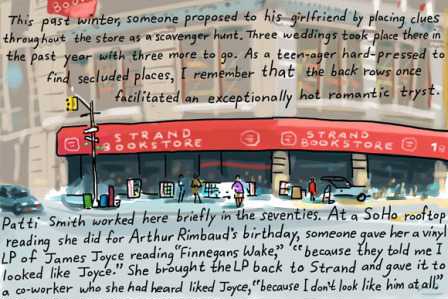 This past winter, someone proposed to his girlfriend by placing clues
throughout the store as a scavenger hunt. Three weddings took place there in
the past year with three more to go. As a teen-ager hard-pressed to
find secluded places, I remember that the back rows once
facilitated an exceptionally hot romantic tryst.
STRAND STRAND
BOOKSTORE BOOKSTORE 18
Patti Smith worked here briefly in the seventies. At a SoHo rooftop
reading she did for Arthur Rimbaud's birthday, someone gave her a vinyl
LP of James Joyce reading "Finnegans Wake," "because they told me I
looked like Joyce." She brought the LP back to Strand and gave it to
a co-worker who she had heard liked Joyce, "because I don't look like him at all."